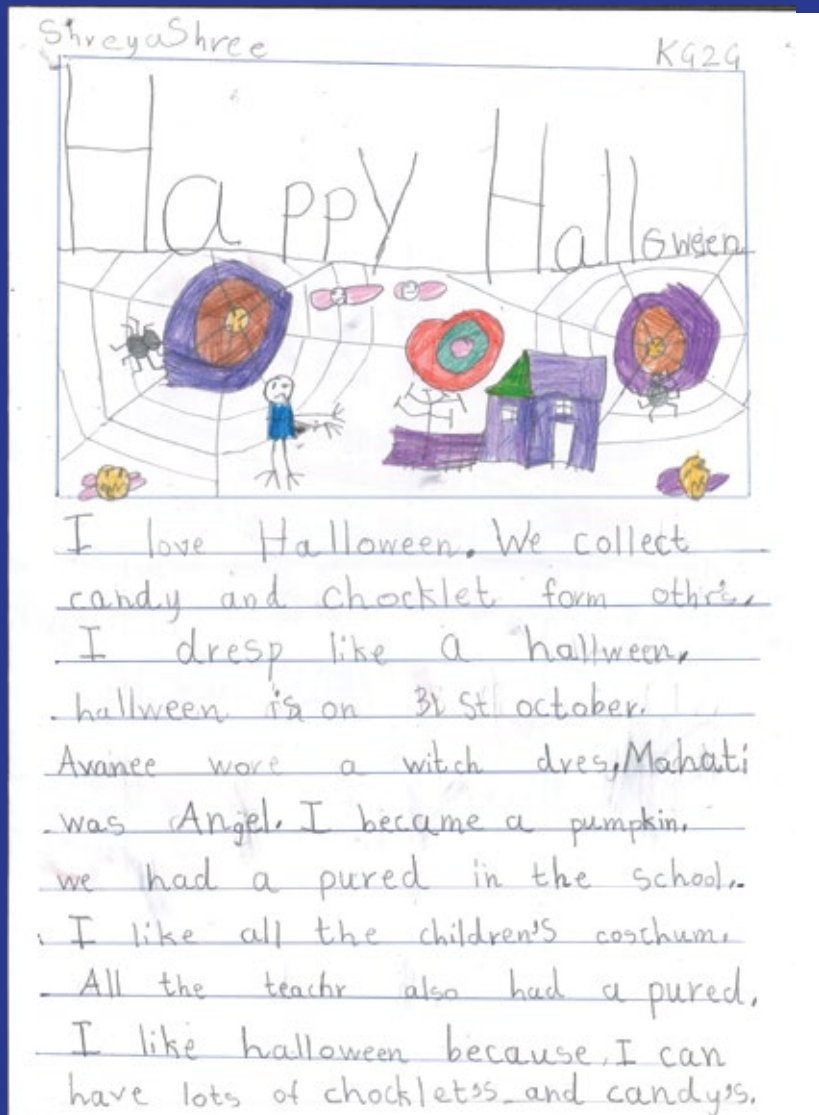 ShreyaShree KG2G
Happy Halloween
I love Halloween. We collect
candy and chocklet form othr's.
I dresp like a hallween.
hallween is on 31 St october.
Avanee wore a witch dres, Mahati
was Angel. I became a pumpkin.
we had a pured in the school.
I like all the children's coschum.
All the teachr also had a pured.
I like halloween because, I can
have lots of chocklet's and candy's.